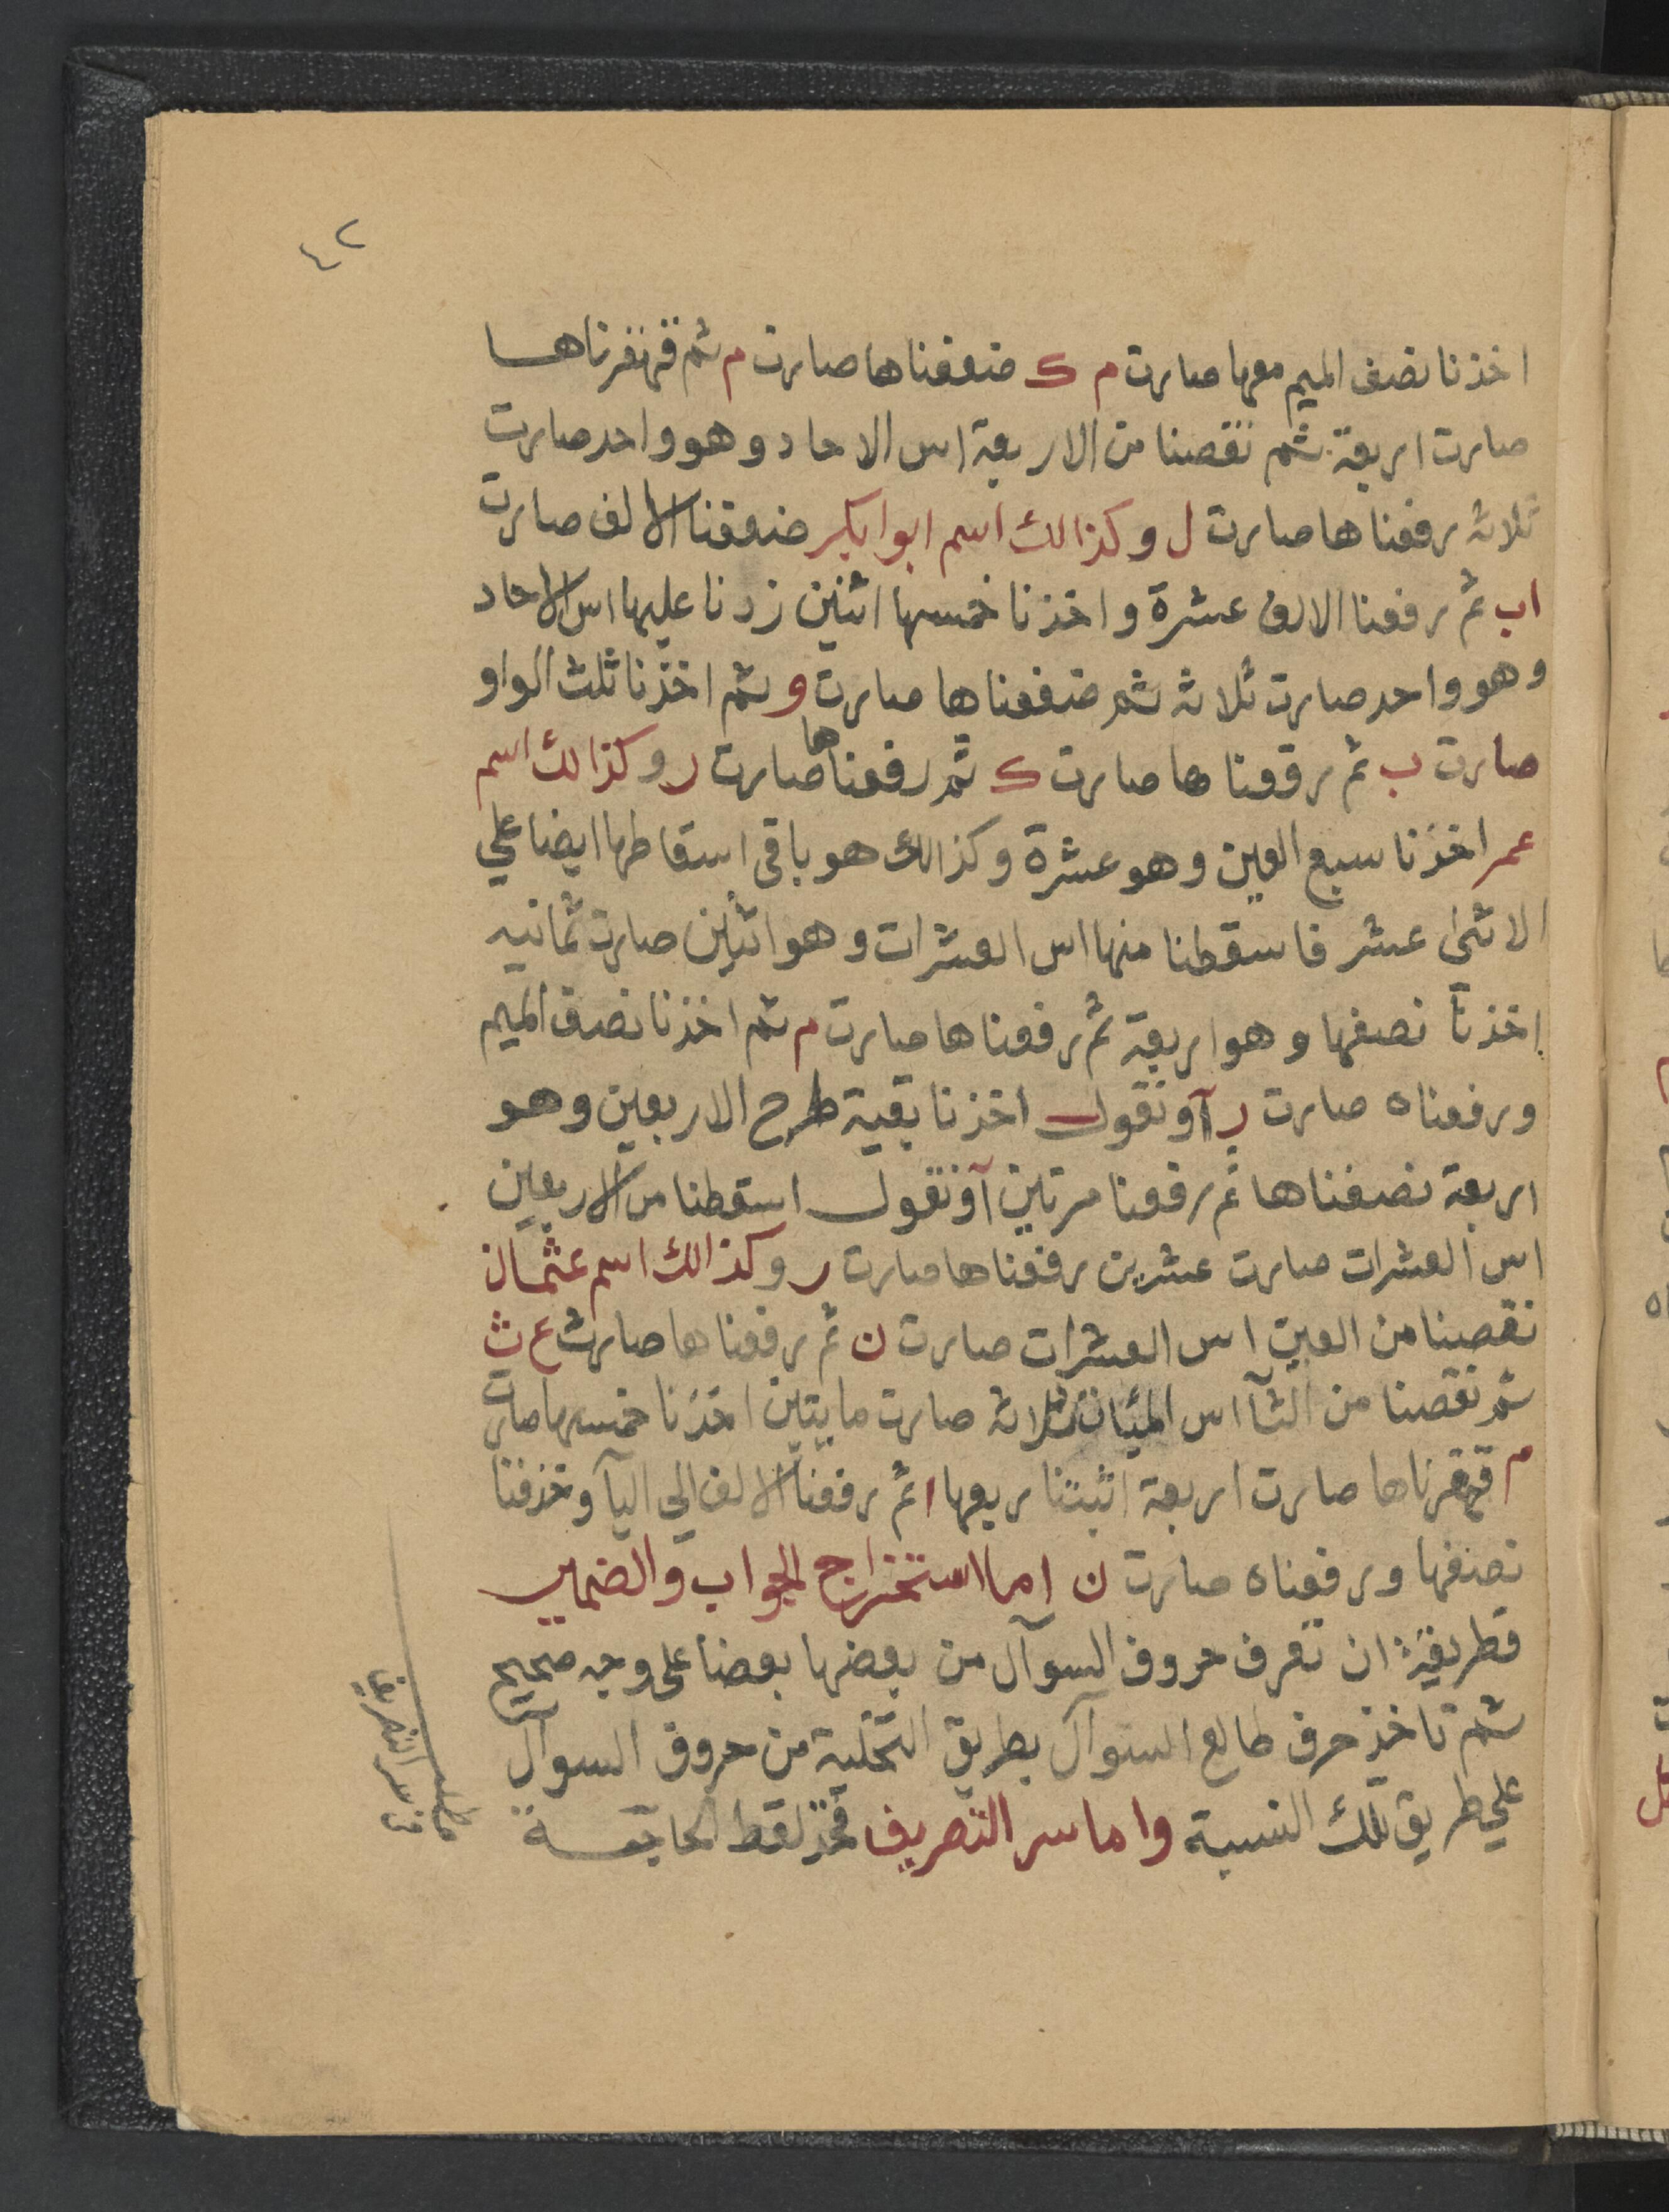 ٤٢
اخذنا نصف الميم معها صارت م ك ضعفناها صارت م ثم قهقرناها
صارت اربعة ثم نقصنا من الاربعة اس الاحاد وهو واحد صارت
ثلاثة رفعناها صارت ل وكذالك اسم ابوابكر ضعفنا الالف صارت
اب ثم رفعنا الالف عشرة واخذنا خمسها اثنين زدنا عليها اس الاحاد
وهو واحد صارت ثلاثة ثم ضعفناها صارت و ثم اخذنا ثلث الواو
صارت ب ثم رفعناها صارت ك ثم رفعناها صارت ر وكذالك اسم
عمر اخذنا سبع العين وهو عشرة وكذالك هو باقى اسقاطها ايضا علي
الاثنى عشر فاسقطنا منها اس العشرات وهو اثنين صارت ثمانيه
اخذنا نصفها وهو اربعة ثم رفعناها صارت م ثم اخذنا نصف الميم
ورفعناه صارت ر آو نقول اخذنا بقية طرح الاربعين وهو
اربعة نصفناها ثم رفعنا مرتين آو نقول اسقطنا من الاربعين
اس العشرات صارت عشرين رفعناها صارت ر وكذالك اسم عثمان
نقصنا من العين اس العشرات صارت ن ثم رفعناها صارت ع ث
ثم نقصنا من الثآ اس المئات ثلاثة صارت مايتين اخذنا خمسها صارت
م قهقرناها صارت اربعة اثبتنا ربعها ا ثم رفعنا الالف الي اليآ وحذفنا
نصفها ورفعناه صارت ن اما استخراج الجواب والضمير
فطريقة ان تعرف حروف السوآل من بعضها بعضا على وجه صحيح
ثم تاخذ حرف طالع السوآل بطريق التخلية من حروف السوآل
علي طريق تلك النسبة واما سر التصريف فخذ لقط الخاتمة
مطلب
في سر التصريف